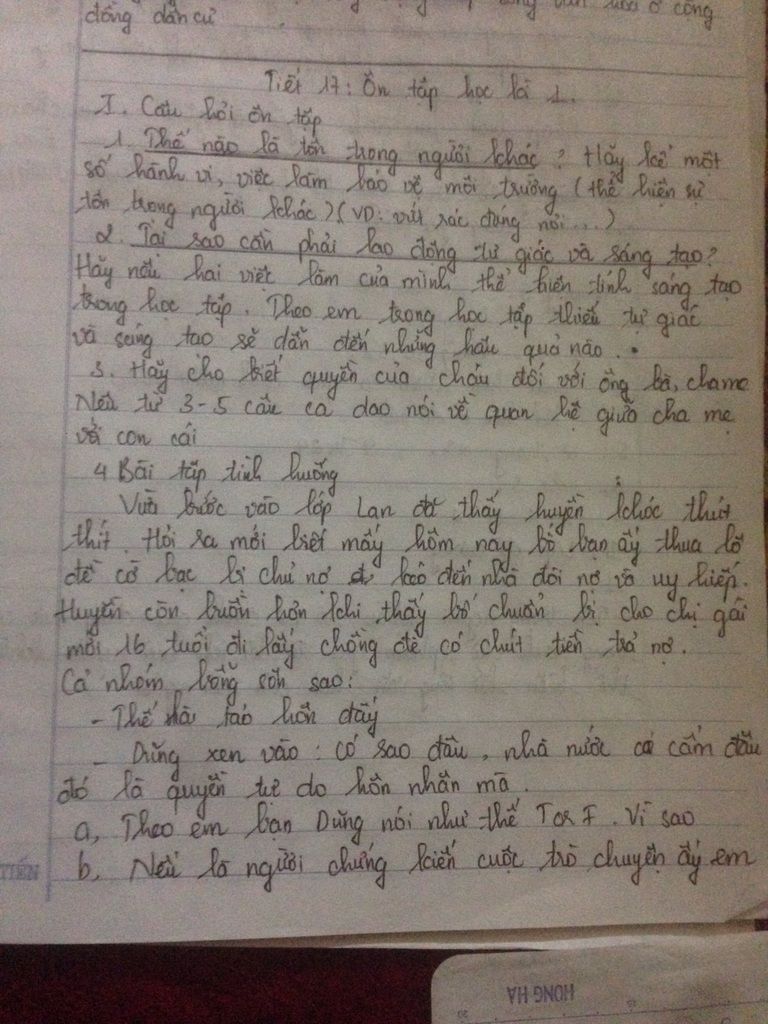 đồng dân cư
Tiết 17: Ôn tập học kì 1.
I. Câu hỏi ôn tập
1. Thế nào là tôn trọng người khác? Hãy kể một
số hành vi, việc làm bảo vệ môi trường (thể hiện sự
tôn trọng người khác) (VD: vứt rác đúng nơi...)
2. Tại sao cần phải lao động tự giác và sáng tạo?
Hãy nêu hai việc làm của mình thể hiện tính sáng tạo
trong học tập. Theo em trong học tập thiếu tự giác
và sáng tạo sẽ dẫn đến những hậu quả nào.
3. Hãy cho biết quyền của cháu đối với ông bà, cha mẹ
Nêu từ 3-5 câu ca dao nói về quan hệ giữa cha mẹ
với con cái
4 Bài tập tình huống
Vừa bước vào lớp Lan đã thấy huyền khóc thút
thít. Hỏi ra mới biết mấy hôm nay bố bạn ấy thua lô
đề cờ bạc bị chủ nợ kéo đến nhà đòi nợ và uy hiếp.
Huyền còn buồn hơn khi thấy bố chuẩn bị cho chị gái
mới 16 tuổi đi lấy chồng để có chút tiền trả nợ.
Cả nhóm bỗng xôn xao:
- Thế là tảo hôn đấy
- Dũng xen vào: có sao đâu, nhà nước có cấm đâu
đó là quyền tự do hôn nhân mà.
a, Theo em bạn Dũng nói như thế T or F. Vì sao
b, Nếu là người chứng kiến cuộc trò chuyện ấy em
TIẾN
HONG HA